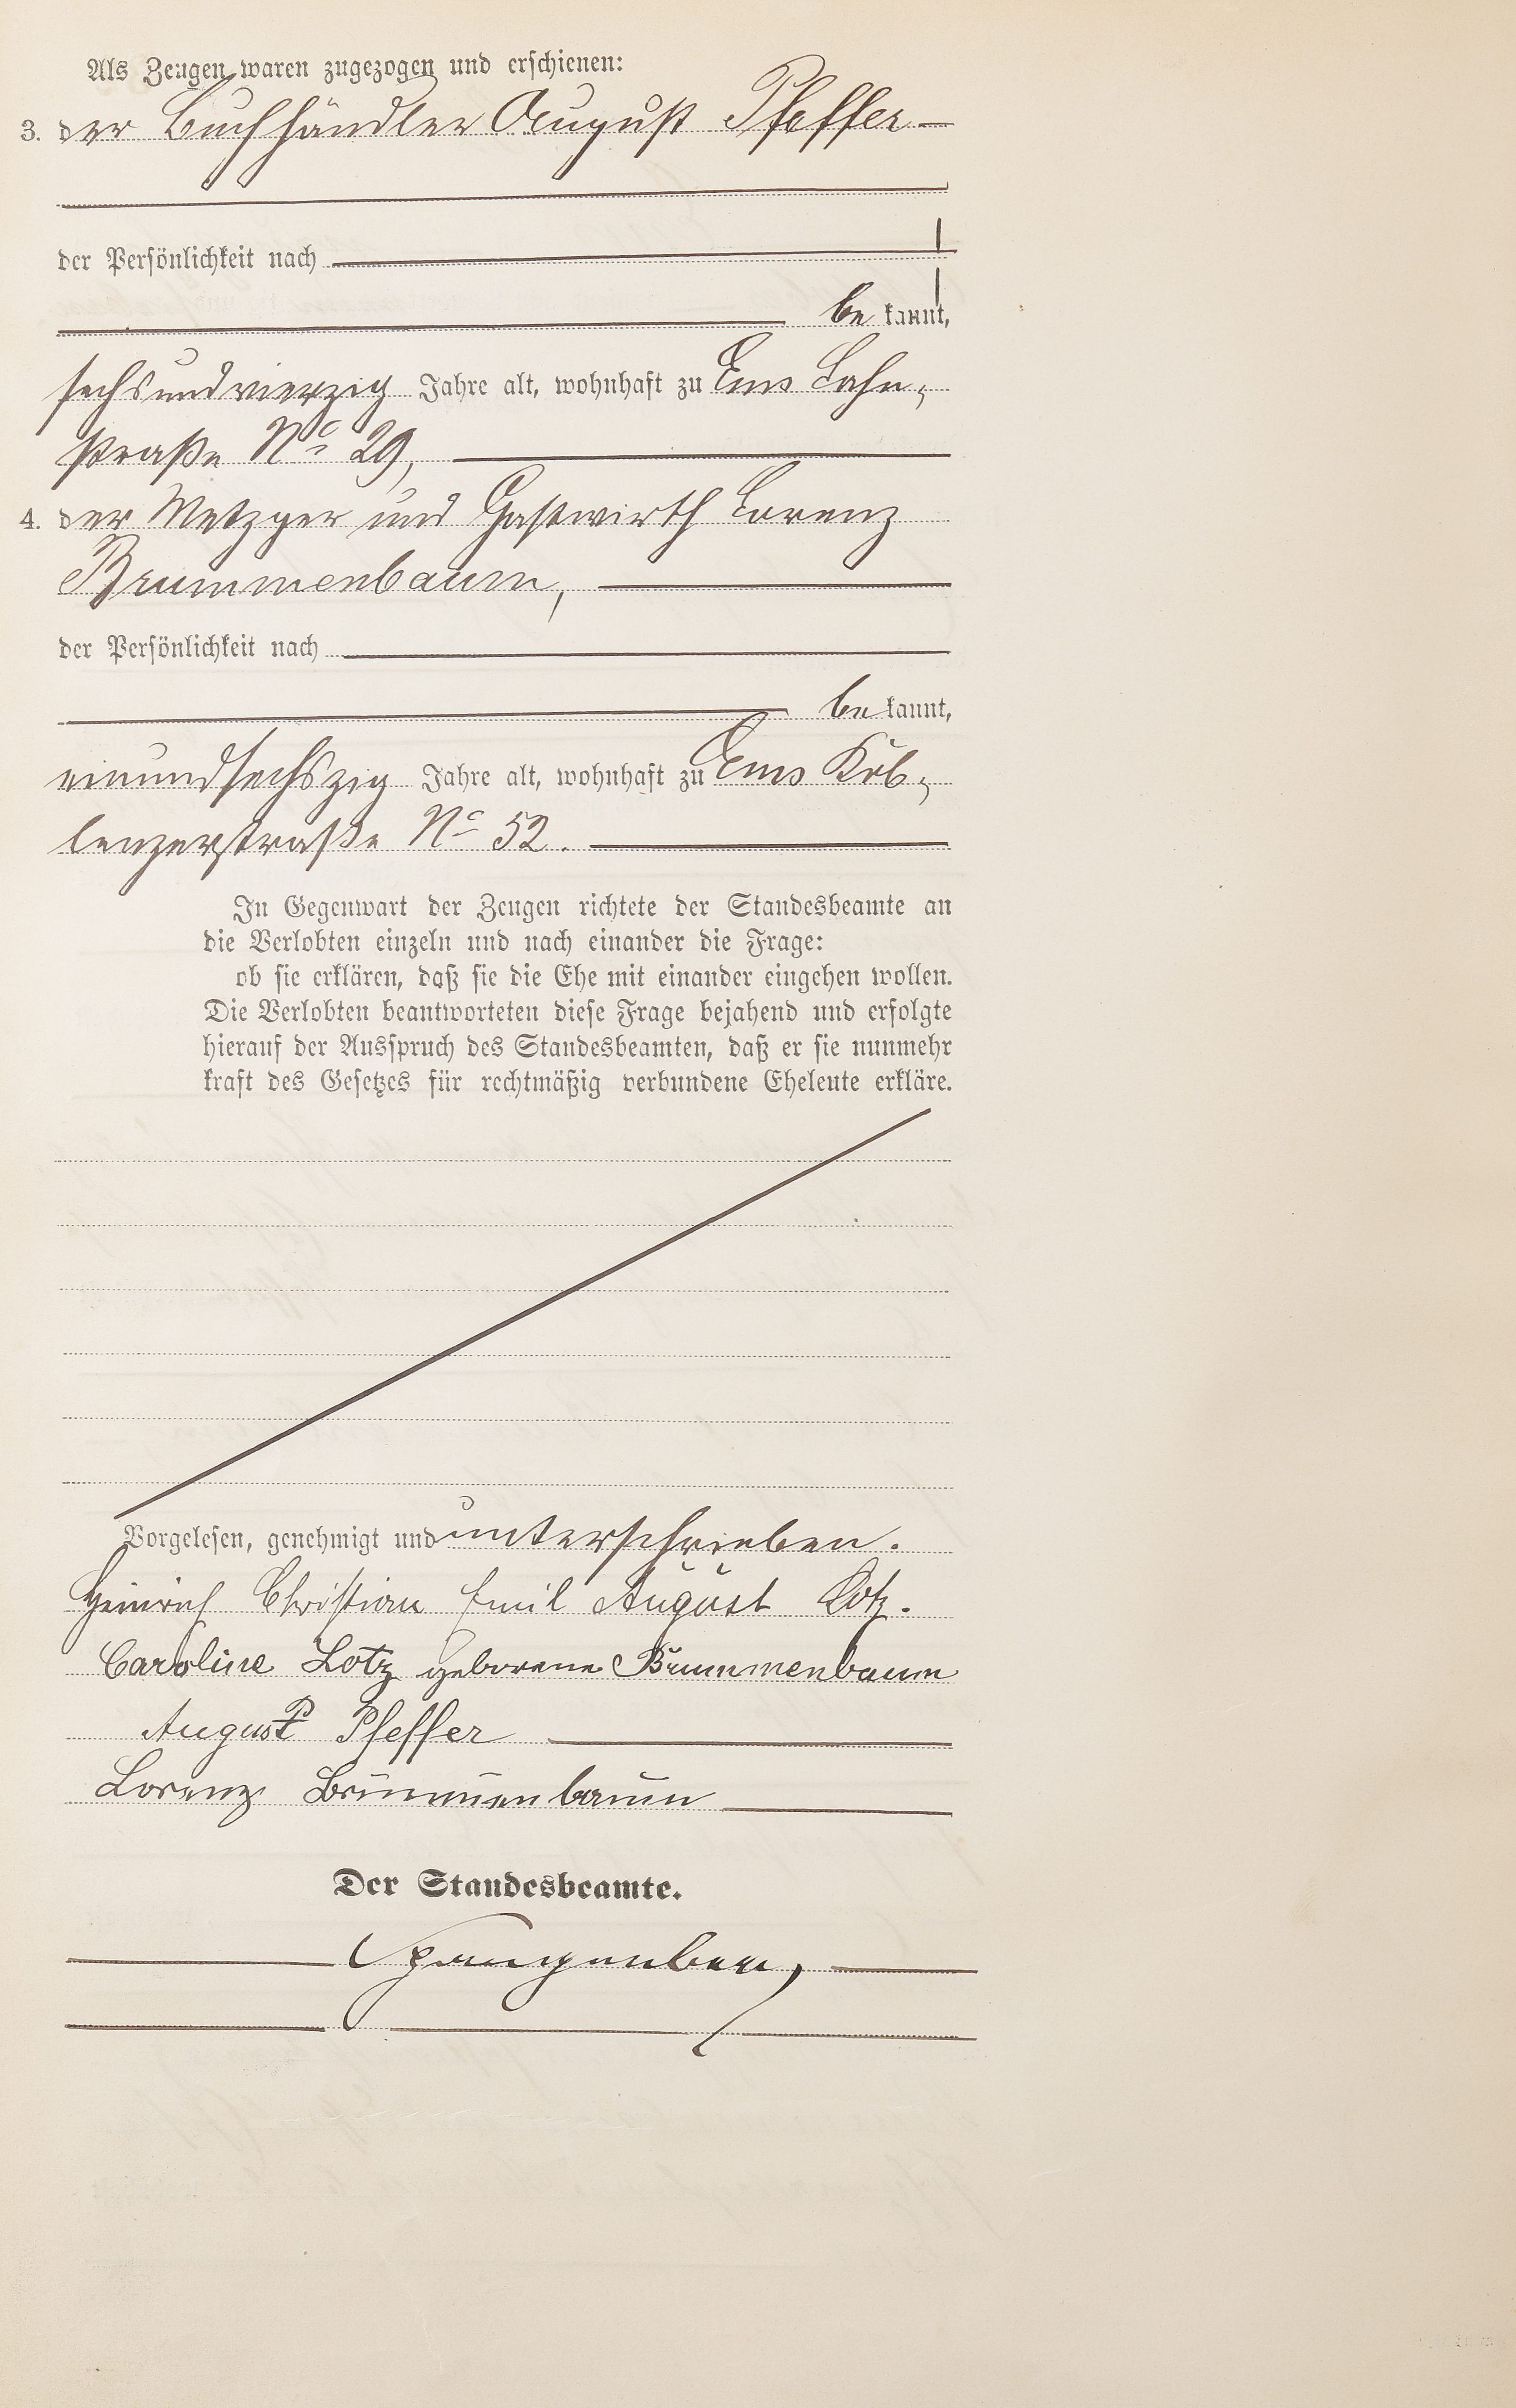 Als Zeugen waren zugezogen und erschienen:
3. der Buchhändler August Pfeffer
der Persönlichkeit nach
bekannt,
sechsundvierzig Jahre alt, wohnhaft zu Ems Lahn-
straße No 29,
4. der Metzger und Gastwirth Lorenz
Brummenbaum,
der Persönlichkeit nach
bekannt,
einundsechszig Jahre alt, wohnhaft zu Ems Kob-
lenzerstraße No 52.
In Gegenwart der Zeugen richtete der Standesbeamte an
die Verlobten einzeln und nach einander die Frage:
ob sie erklären, daß sie die Ehe mit einander eingehen wollen.
Die Verlobten beantworteten diese Frage bejahend und erfolgte
hierauf der Ausspruch des Standesbeamten, daß er sie nunmehr
kraft des Gesetzes für rechtmäßig verbundene Eheleute erkläre.
Vorgelesen, genehmigt und unterschrieben.
Heinrich Christian Emil August Lotz.
Caroline Lotz geborene Brummenbaum
August Pfeffer
Lorenz Brummenbaum
Der Standesbeamte.
Spangenberg